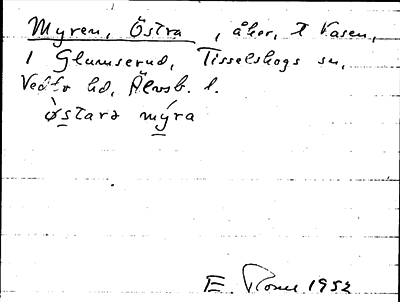 Myren, Östra, åker, t Kasen,
1 Glumserud, Tisselskogs sn,
Vedbo hd, Älvsb. l.
östara mýra
E. 1952